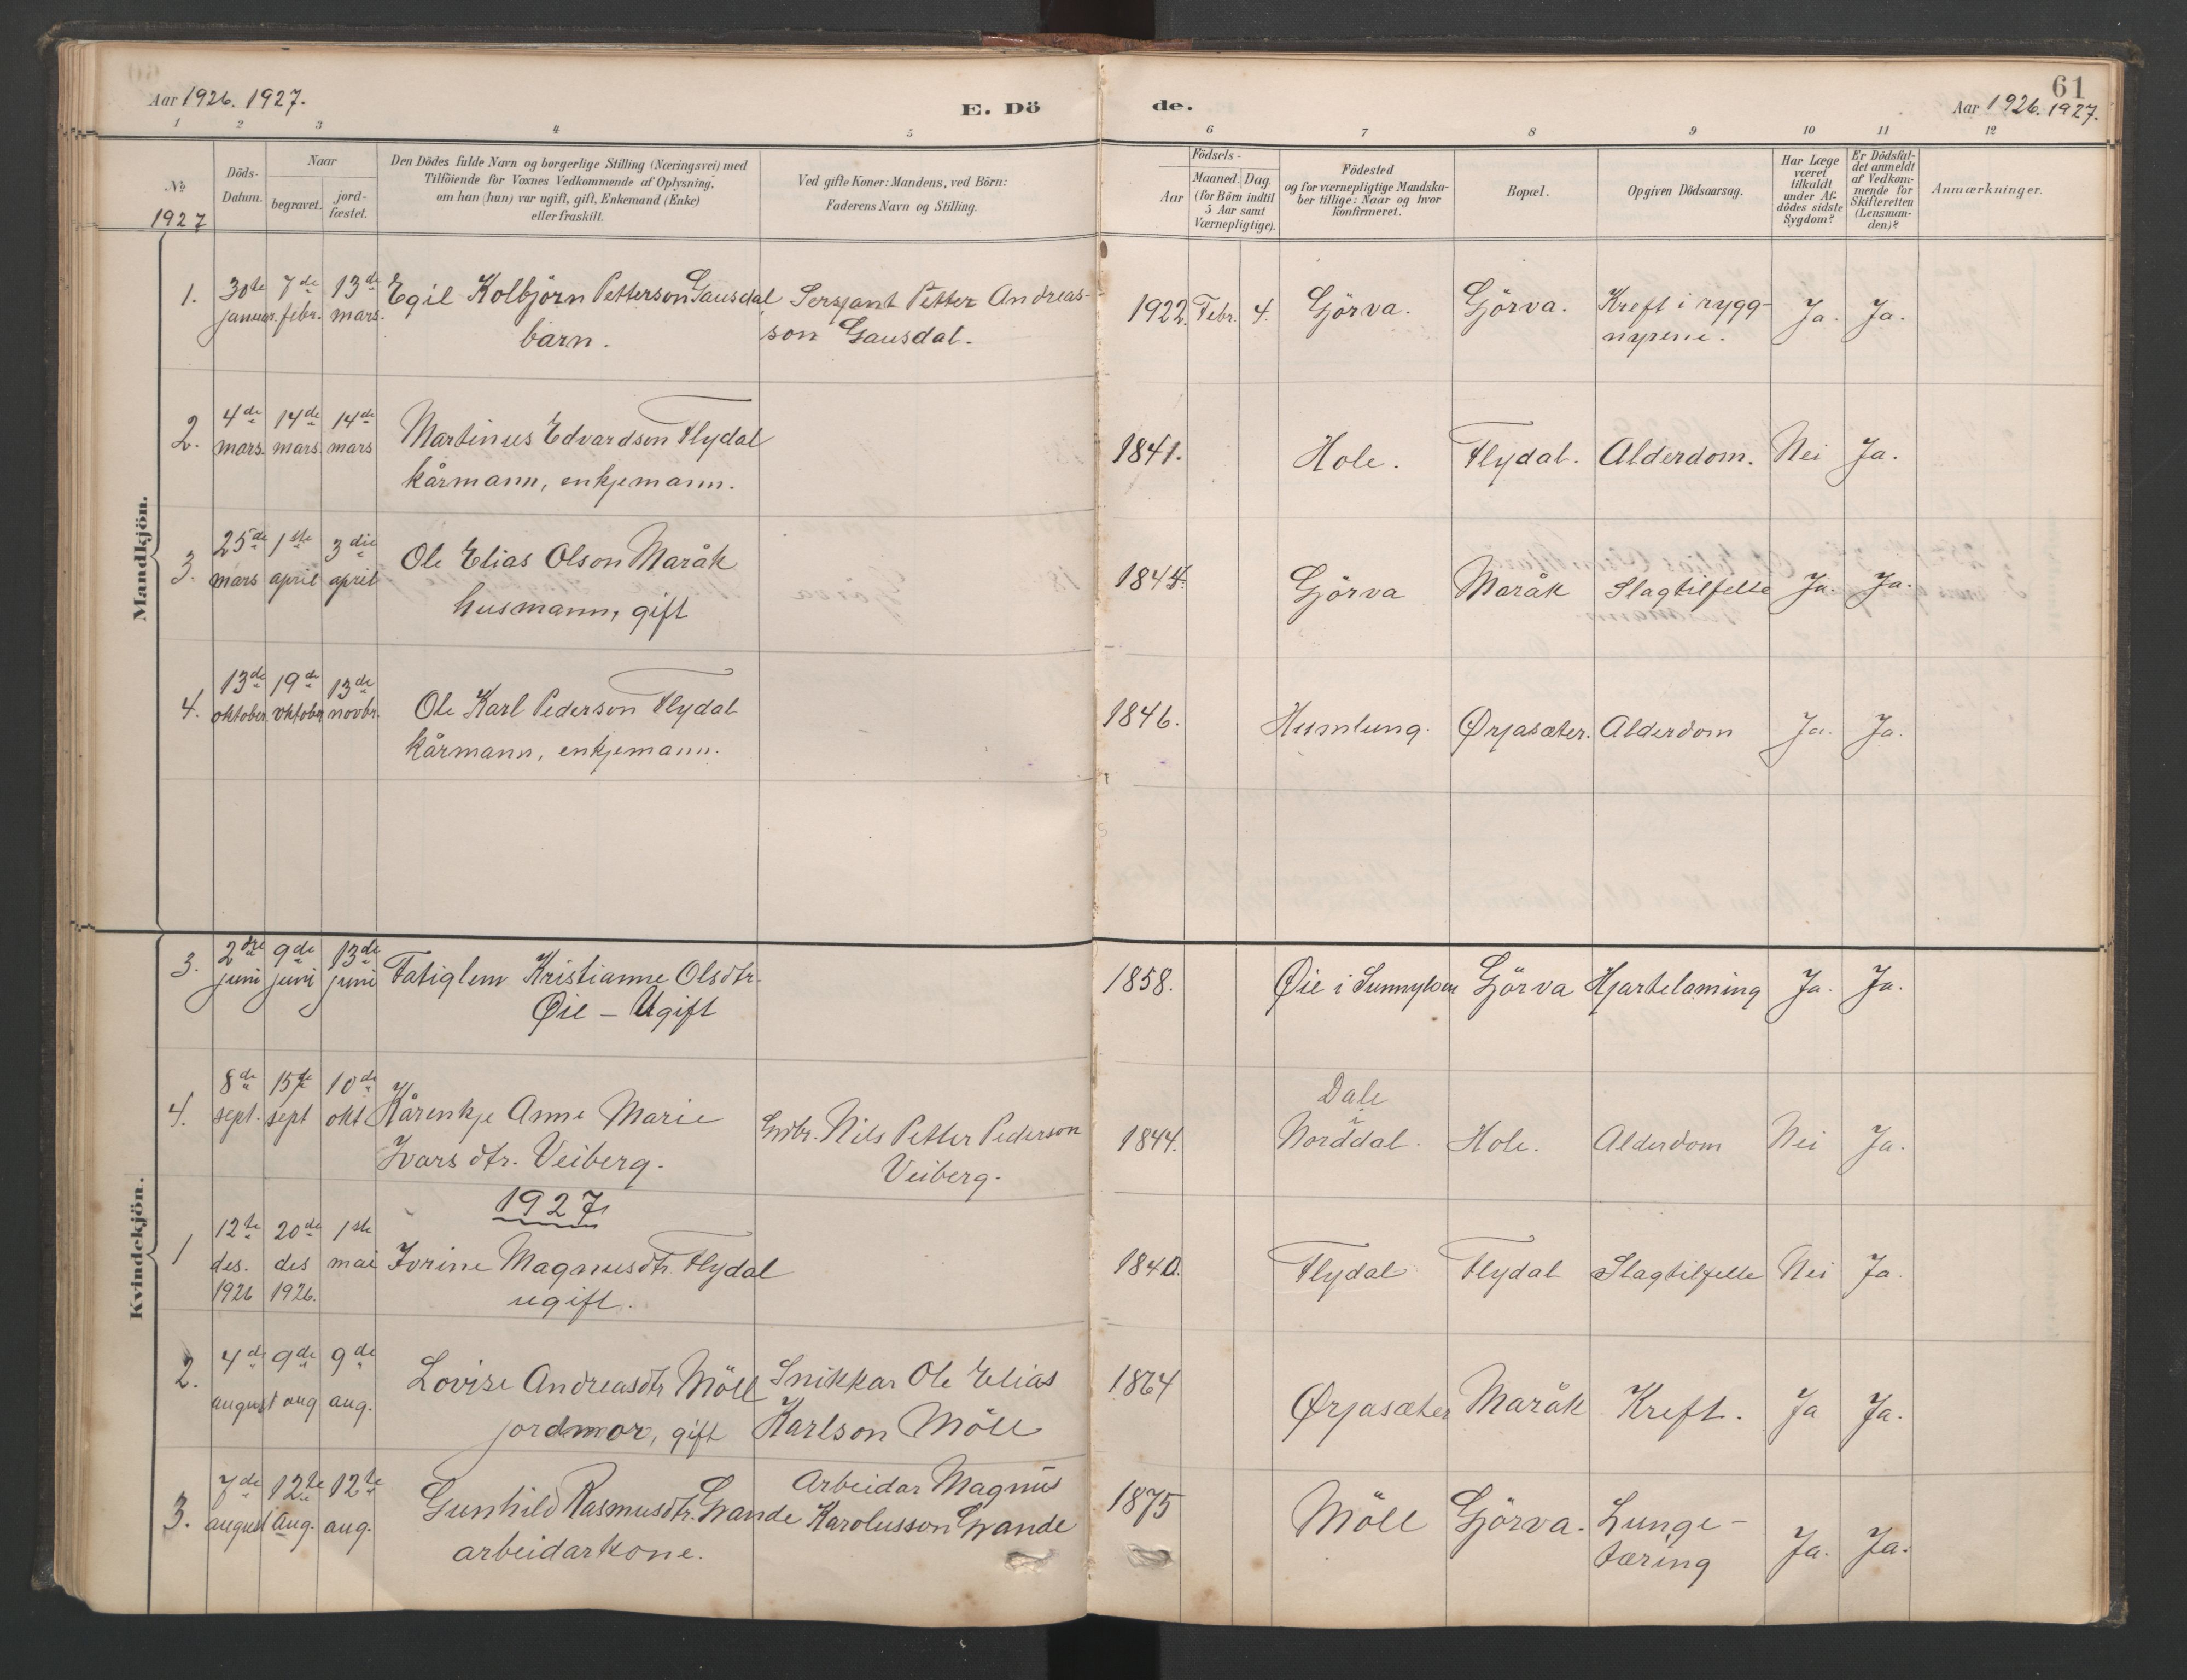 61
Aar 1926. 1927.
E. Dö
de.
Aar 1926. 1927.
1 2 3 4 5 6 7 8 9 10 11 12
№
1927
Döds-
Datum.
Naar
begravet.
jord-
fæstet.
Den Dödes fulde Navn og borgerlige Stilling (Næringsvei) med
Tilföiende for Voxnes Vedkommende af Oplysning,
om han (hun) var ugift, gift, Enkemand (Enke)
eller fraskilt.
Ved gifte Koner: Mandens, ved Börn:
Faderens Navn og Stilling.
Födsels-
Aar
Maaned. Dag.
(for Börn indtil
5 Aar samt
Værnepligtige).
Födested
og for værnepligtige Mandska-
ber tillige: Naar og hvor
konfirmeret.
Bopæl.
Opgiven Dödsaarsag.
Har Læge
været
tilkaldt
under Af-
dödes sidste
Sygdom?
Er Dödsfal-
det anmeldt
af Vedkom-
mende for
Skifteretten
(Lensman-
den)?
Anmærkninger.
Mandkjön.
1. 30te januar. 7de febr. 13de mars. Egil Kolbjörn Petterson Gausdal Sersjant Petter Andreas- 1922. Febr. 4. Gjörva. Gjörva. Kreft i rygg- Ja. Ja.
barn. son Gausdal. nyrene.
2. 4de mars. 14de mars. 14de mars Martinus Edvardson Flydal 1841. Hole. Flydal. Alderdom. Nei Ja.
kårmann, enkjemann.
3. 25de mars 1ste april 3die april Ole Elias Olson Maråk 1844. Gjörva Maråk Slagtilfelle Ja. Ja.
husmann, gift
4. 13de oktober. 19de oktober 13de novbr. Ole Karl Pederson Flydal 1846. Humlung. Ørjasæter. Alderdom Ja. Ja.
kårmann, enkjemann.
Kvindekjön.
3. 2dre juni 9de juni 13de juni Fatiglem Kristianne Olsdtr. 1858. Øie i Sunnylven Gjörva Hjartelaming Ja. Ja.
Øie – Ugift
4. 8de sept. 15de sept 10de okt Kårenkje Anne Marie Grdbr. Nils Petter Pederson 1844. Dale i Norddal. Hole. Alderdom Nei Ja.
Ivarsdtr. Veiberg. Veiberg.
1927
1 12te des. 1926 20de des 1926. 1ste mai Ivrine Magnusdtr. Flydal 1840. Flydal Flydal Slagtilfelle Nei Ja.
ugift.
2. 4de august 9de aug 9de aug. Lovise Andreasdtr Möll Snikkar Ole Elias 1864 Ørjasæter Maråk Kreft. Ja Ja.
jordmor, gift Karlson Möll
3. 7de august 12te aug. 12te aug. Gunhild Rasmusdtr. Grande Arbeidar Magnus 1875 Möll Gjörva. Lunge- Ja. Ja.
arbeidarkone. Karolusson Grande tæring